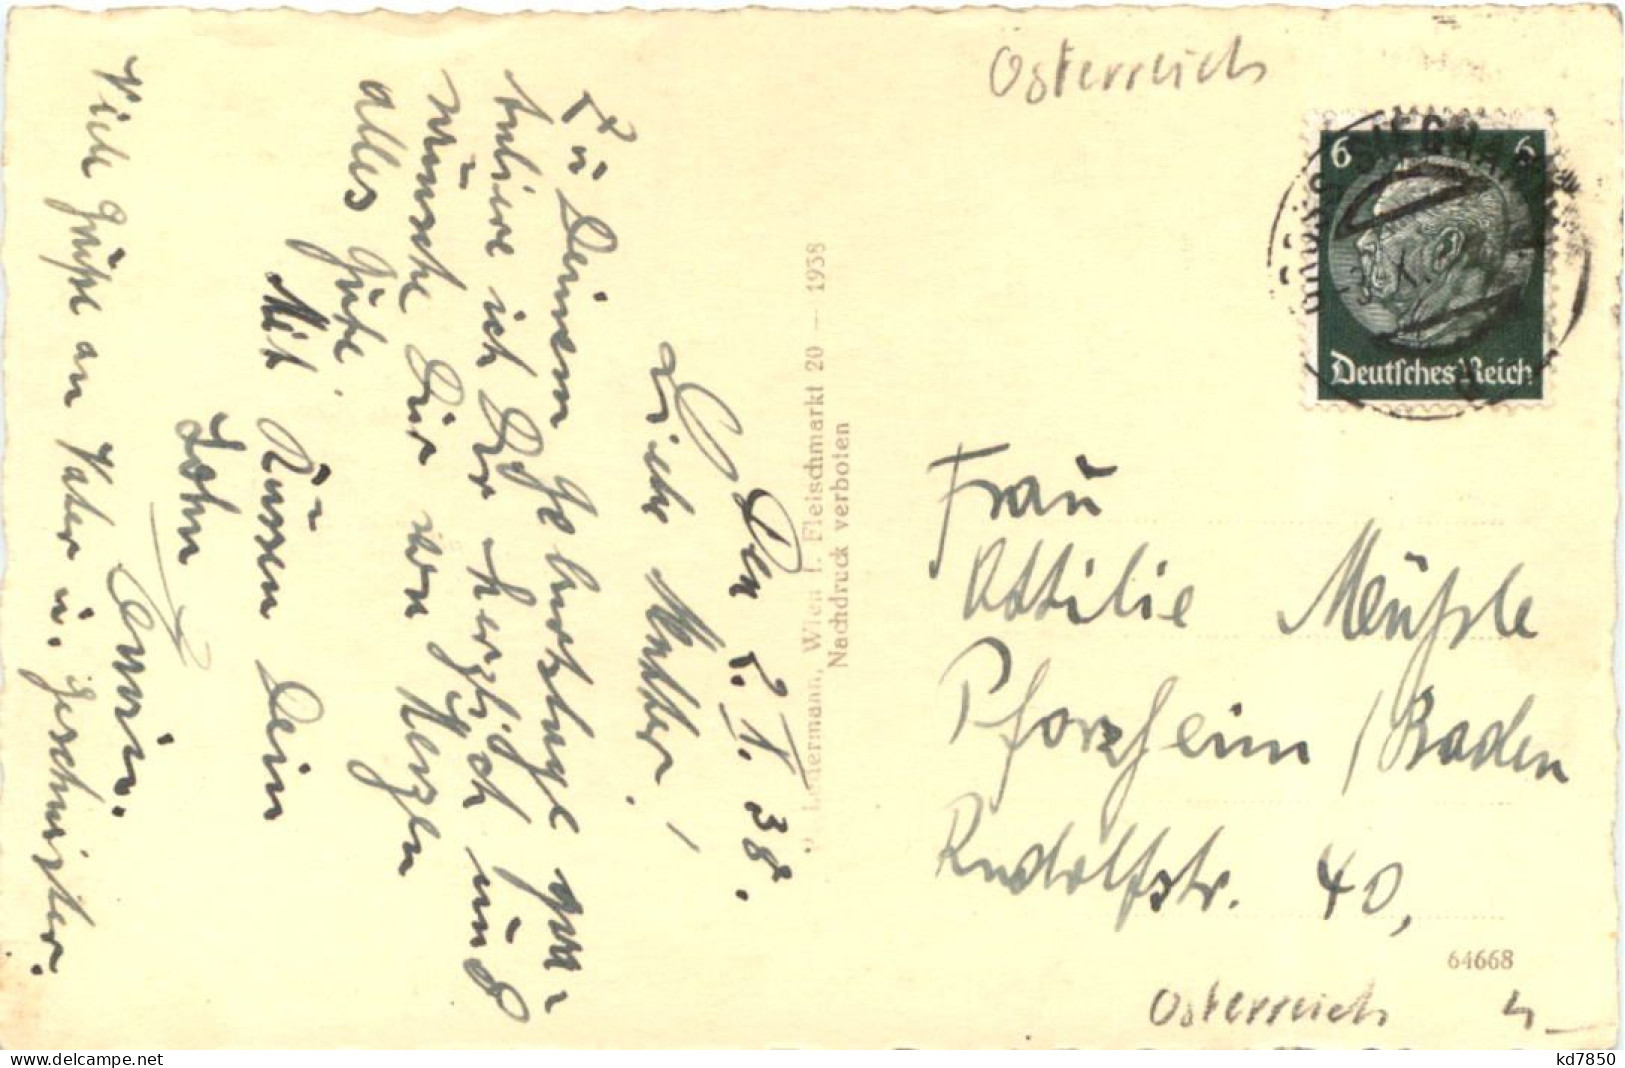 Österreich
6 6
Deutsches Reich
Den 2. X. 38.
Liebe Mutter!
Zu Deinem Geburtstage gra-
tuliere ich Dir herzlich und
wünsche Dir von Herzen
alles Gute.
Mit Küssen Dein
Sohn
Erwin.
Viele Grüße an Vater u. Geschwister.
P. Ledermann, Wien I. Fleischmarkt 20 — 1938
Nachdruck verboten
Frau
Ottilie
Pforzheim / Baden
Rudolfstr. 40,
64668
Österreich 4 —
kd7850
delcampe.net